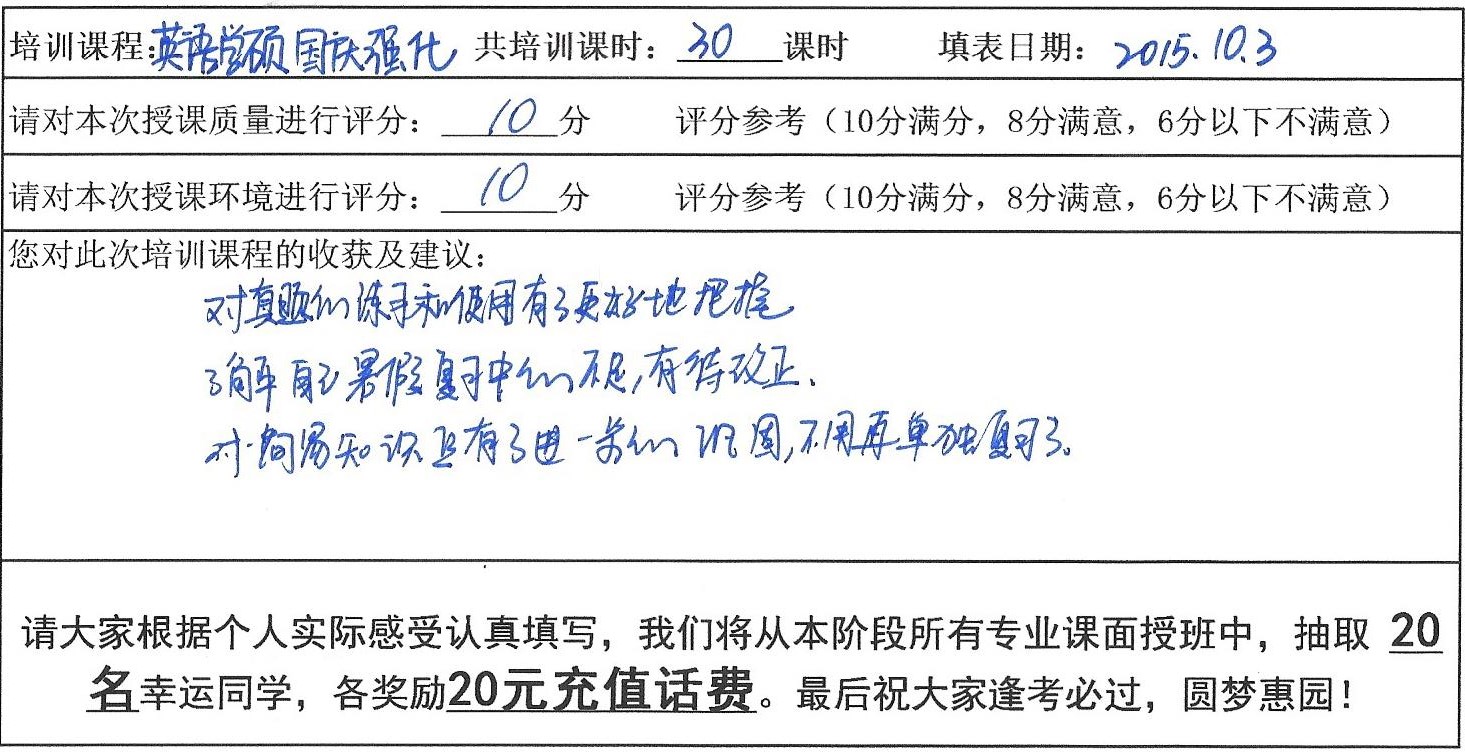 培训课程:英语学硕国庆强化 共培训课时: 30 课时 填表日期: 2015.10.3
请对本次授课质量进行评分: 10 分 评分参考（10分满分，8分满意，6分以下不满意）
请对本次授课环境进行评分: 10 分 评分参考（10分满分，8分满意，6分以下不满意）
您对此次培训课程的收获及建议:
对真题的练手和使用有了更好地把握
了解自己暑假复习中的不足,有待改正、
对 知识点有了进一步的巩固,不用再单独复习了。
请大家根据个人实际感受认真填写，我们将从本阶段所有专业课面授班中，抽取 20
名幸运同学，各奖励20元充值话费。最后祝大家逢考必过，圆梦惠园！